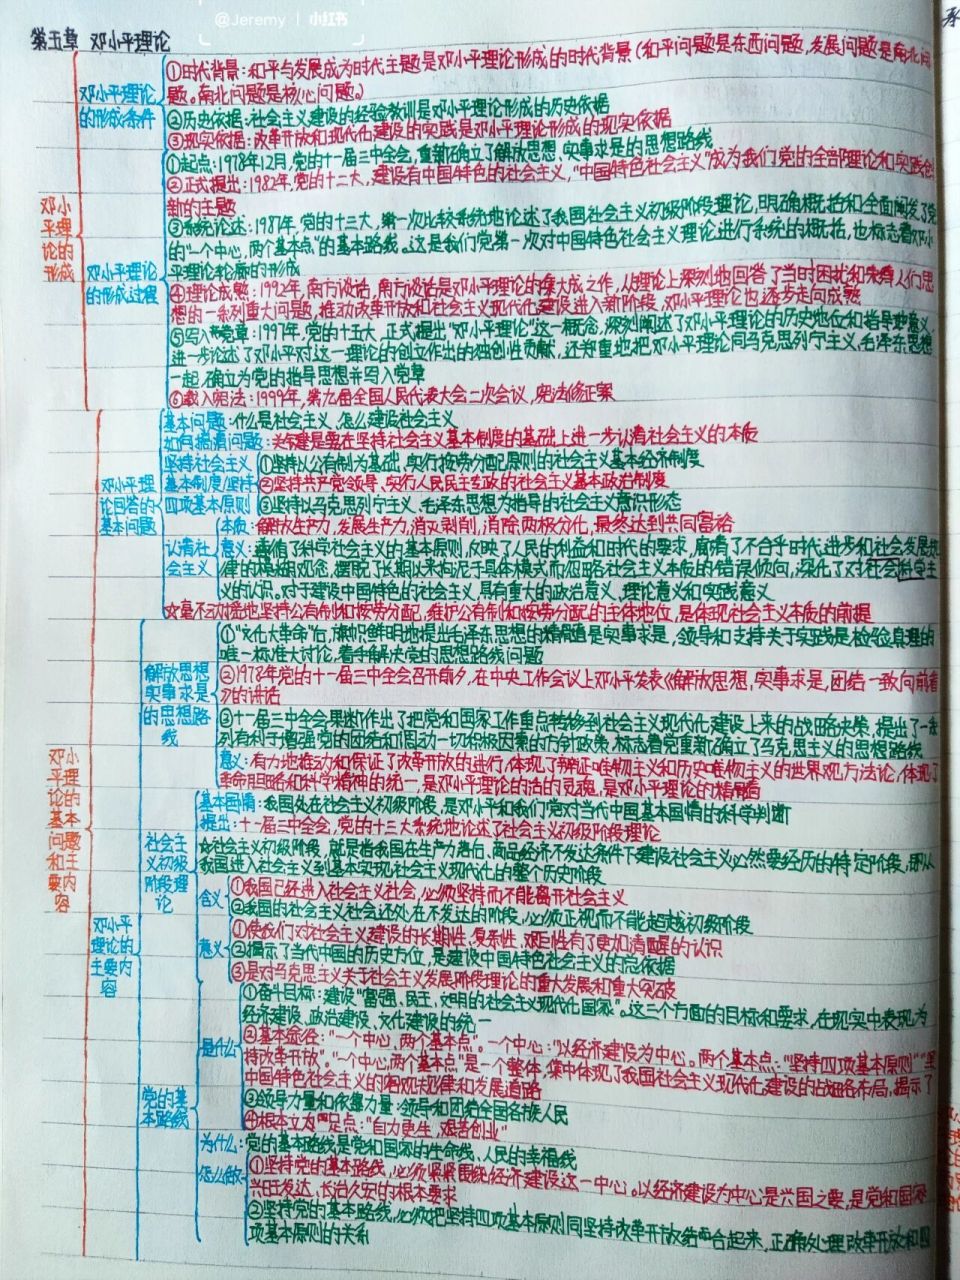 @Jeremy | 小红书
第五章 邓小平理论
邓小平理论的形成
邓小平理论
的形成条件
①时代背景:和平与发展成为时代主题是邓小平理论形成的时代背景(和平问题是东西问题,发展问题是南北问
题。南北问题是核心问题。)
②历史依据:社会主义建设的经验教训是邓小平理论形成的历史依据
③现实依据:改革开放和现代化建设的实践是邓小平理论形成的现实依据
邓小平理论
的形成过程
①起点:1978年12月,党的十一届三中全会,重新确立了解放思想、实事求是的思想路线
②正式提出:1982年,党的十二大,建设有中国特色的社会主义,"中国特色社会主义"成为我们党的全部理论和实践创
新的主题
③系统论述:1987年,党的十三大,第一次比较系统地论述了我国社会主义初级阶段理论,明确概括和全面阐发了党
的"一个中心,两个基本点"的基本路线。这是我们党第一次对中国特色社会主义理论进行系统的概括,也标志着邓小
平理论轮廓的形成
④理论成熟:1992年,南方谈话,南方谈话是邓小平理论的集大成之作,从理论上深刻地回答了当时困扰和束缚人们思
想的一系列重大问题,推动改革开放和社会主义现代化建设进入新阶段,邓小平理论也逐步走向成熟
⑤写入党章:1997年,党的十五大,正式提出"邓小平理论"这一概念,深刻阐述了邓小平理论的历史地位和指导意义,
进一步论述了邓小平对这一理论的创立作出的独创性贡献,还郑重地把邓小平理论同马克思列宁主义、毛泽东思想
一起,确立为党的指导思想并写入党章
⑥载入宪法:1999年,第九届全国人民代表大会二次会议,宪法修正案
邓小平理论的基本问题和主要内容
邓小平理
论回答的
基本问题
基本问题:什么是社会主义、怎么建设社会主义
如何搞清问题:关键是要在坚持社会主义基本制度的基础上进一步认清社会主义的本质
坚持社会主义
基本制度(坚持
四项基本原则)
①坚持以公有制为基础、实行按劳分配原则的社会主义基本经济制度
②坚持共产党领导、实行人民民主专政的社会主义基本政治制度
③坚持以马克思列宁主义、毛泽东思想为指导的社会主义意识形态
认清社
会主义
本质:解放生产力,发展生产力,消灭剥削,消除两极分化,最终达到共同富裕
意义:遵循了科学社会主义的基本原则,反映了人民的利益和时代的要求,廓清了不合乎时代进步和社会发展规
律的模糊观念,摆脱了长期以来拘泥于具体模式而忽略社会主义本质的错误倾向,深化了对社会科学主
义的认识。对于建设中国特色的社会主义,具有重大的政治意义、理论意义和实践意义
☆毫不动摇地坚持公有制和按劳分配,维护公有制和按劳分配的主体地位,是体现社会主义本质的前提
邓小平
理论的
主要内
容
解放思想
实事求是
的思想路
线
①"文化大革命"后,旗帜鲜明地提出毛泽东思想的精髓是实事求是,领导和支持关于实践是检验真理的
唯一标准大讨论,着手解决党的思想路线问题
②1978年党的十一届三中全会召开前夕,在中央工作会议上邓小平发表《解放思想,实事求是,团结一致向前看
》的讲话
③十一届三中全会果断作出了把党和国家工作重点转移到社会主义现代化建设上来的战略决策,提出了一系
列有利于增强党的团结和调动一切积极因素的方针政策,标志着党重新确立了马克思主义的思想路线
意义:有力地推动和保证了改革开放的进行,体现了辩证唯物主义和历史唯物主义的世界观方法论,体现了
革命胆略和科学精神的统一,是邓小平理论的活的灵魂,是邓小平理论的精髓
社会主
义初级
阶段理
论
基本国情:我国处在社会主义初级阶段,是邓小平和我们党对当代中国基本国情的科学判断
提出:十一届三中全会,党的十三大系统地论述了社会主义初级阶段理论
☆社会主义初级阶段,就是指我国在生产力落后、商品经济不发达条件下建设社会主义必然要经历的特定阶段,即从
我国进入社会主义到基本实现社会主义现代化的整个历史阶段
含义
①我国已经进入社会主义社会,必须坚持而不能离开社会主义
②我国的社会主义社会还处在不发达的阶段,必须正视而不能超越初级阶段
意义
①使我们对社会主义建设的长期性、复杂性、艰巨性有了更加清醒的认识
②揭示了当代中国的历史方位,是建设中国特色社会主义的总依据
③是对马克思主义关于社会主义发展阶段理论的重大发展和重大突破
党的基
本路线
是什么
①奋斗目标:建设"富强、民主、文明的社会主义现代化国家"。这三个方面的目标和要求,在现实中表现为
经济建设、政治建设、文化建设的统一
②基本途径:"一个中心,两个基本点"。一个中心:"以经济建设为中心。两个基本点:"坚持四项基本原则""坚
持改革开放"。"一个中心,两个基本点"是一个整体,集中体现了我国社会主义现代化建设的战略布局,揭示了
中国特色社会主义的客观规律和发展道路
③领导力量和依靠力量:领导和团结全国各族人民
④根本立足点:"自力更生,艰苦创业"
为什么:党的基本路线是党和国家的生命线、人民的幸福线
怎么做
①坚持党的基本路线,必须紧紧围绕经济建设这一中心。以经济建设为中心是兴国之要,是党和国家
兴旺发达、长治久安的根本要求
②坚持党的基本路线,必须把坚持四项基本原则同坚持改革开放结合起来,正确处理改革开放和四
项基本原则的关系